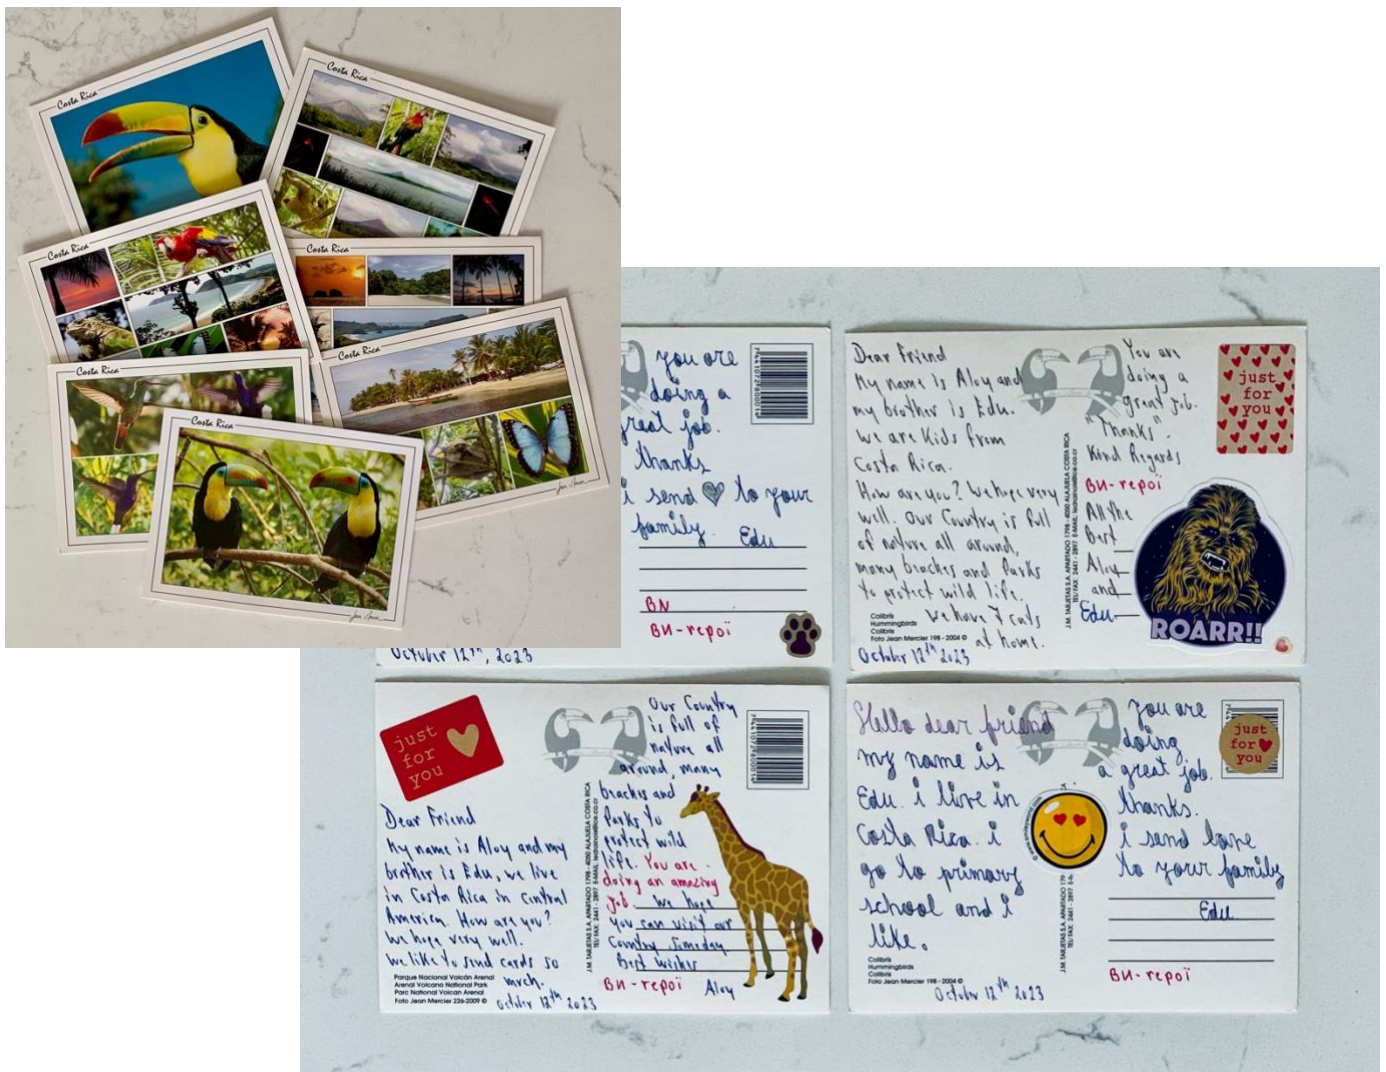 Costa Rica
Costa Rica
Costa Rica
Costa Rica
Costa Rica
Costa Rica
Costa Rica
you are
doing a
great job.
thanks
i send ♥ to your
family.
Edu
BN
ВИ-герої
October 12th, 2023
Dear Friend
My name is Aloy and
my brother is Edu.
We are Kids from
Costa Rica.
How are you? We hope very
well. Our Country is full
of nature all around,
many beaches and Parks
to protect wild life.
We have 7 cats
at home.
October 12th 2023
Colibris
Hummingbirds
Colibris
Foto Jean Mercier 198 - 2004 ©
J.M. TARJETAS S.A. APARTADO 1798 - 4050 ALAJUELA COSTA RICA
You are
doing a
great Job.
"Thanks".
Kind Regards
ВИ-герої
All the
Best
Aloy
and
Edu
just
for
you
ROARR!!
just
for
you
Dear Friend
My name is Aloy and my
brother is Edu, we live
in Costa Rica in Central
America. How are you?
We hope very well.
We like to send cards so
much.
Parque Nacional Volcán Arenal
Arenal Volcano National Park
Parc National Volcan Arenal
Foto Jean Mercier 226-2009 ©
October 12th 2023
J.M. TARJETAS S.A. APARTADO 1798 - 4050 ALAJUELA COSTA RICA
Our Country
is full of
nature all
around, many
beaches and
Parks to
protect wild
life. You are
doing an amazing
Job. We hope
you can visit our
Country Someday.
Best wishes
ВИ-герої Aloy
Hello dear friend
my name is
Edu. i live in
Costa Rica. i
go to primary
school and i
like.
Colibris
Hummingbirds
Colibris
Foto Jean Mercier 198 - 2004 ©
October 12th 2023
you are
doing
a great job.
thanks.
i send love
to your family
Edu
ВИ-герої
just
for
you